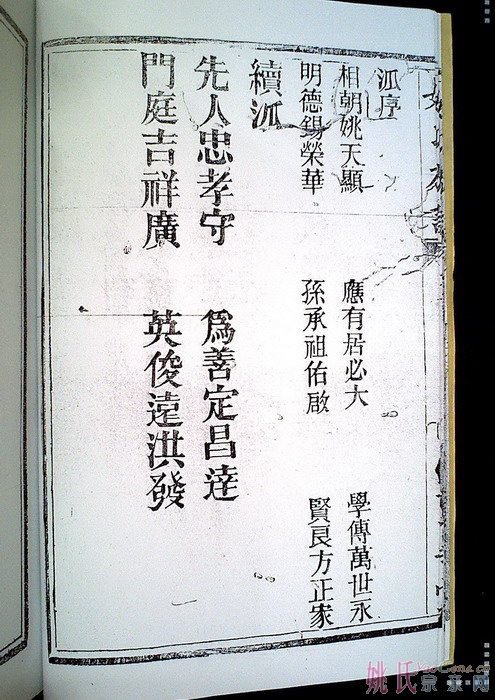 派序
相朝姚天顯 應有居必大 學傳萬世永
明德錫榮華 孫承祖佑啟 賢良方正家
續派
先人忠孝守 爲善定昌達
門庭吉祥廣 英俊遠洪發
姚氏宗亲网